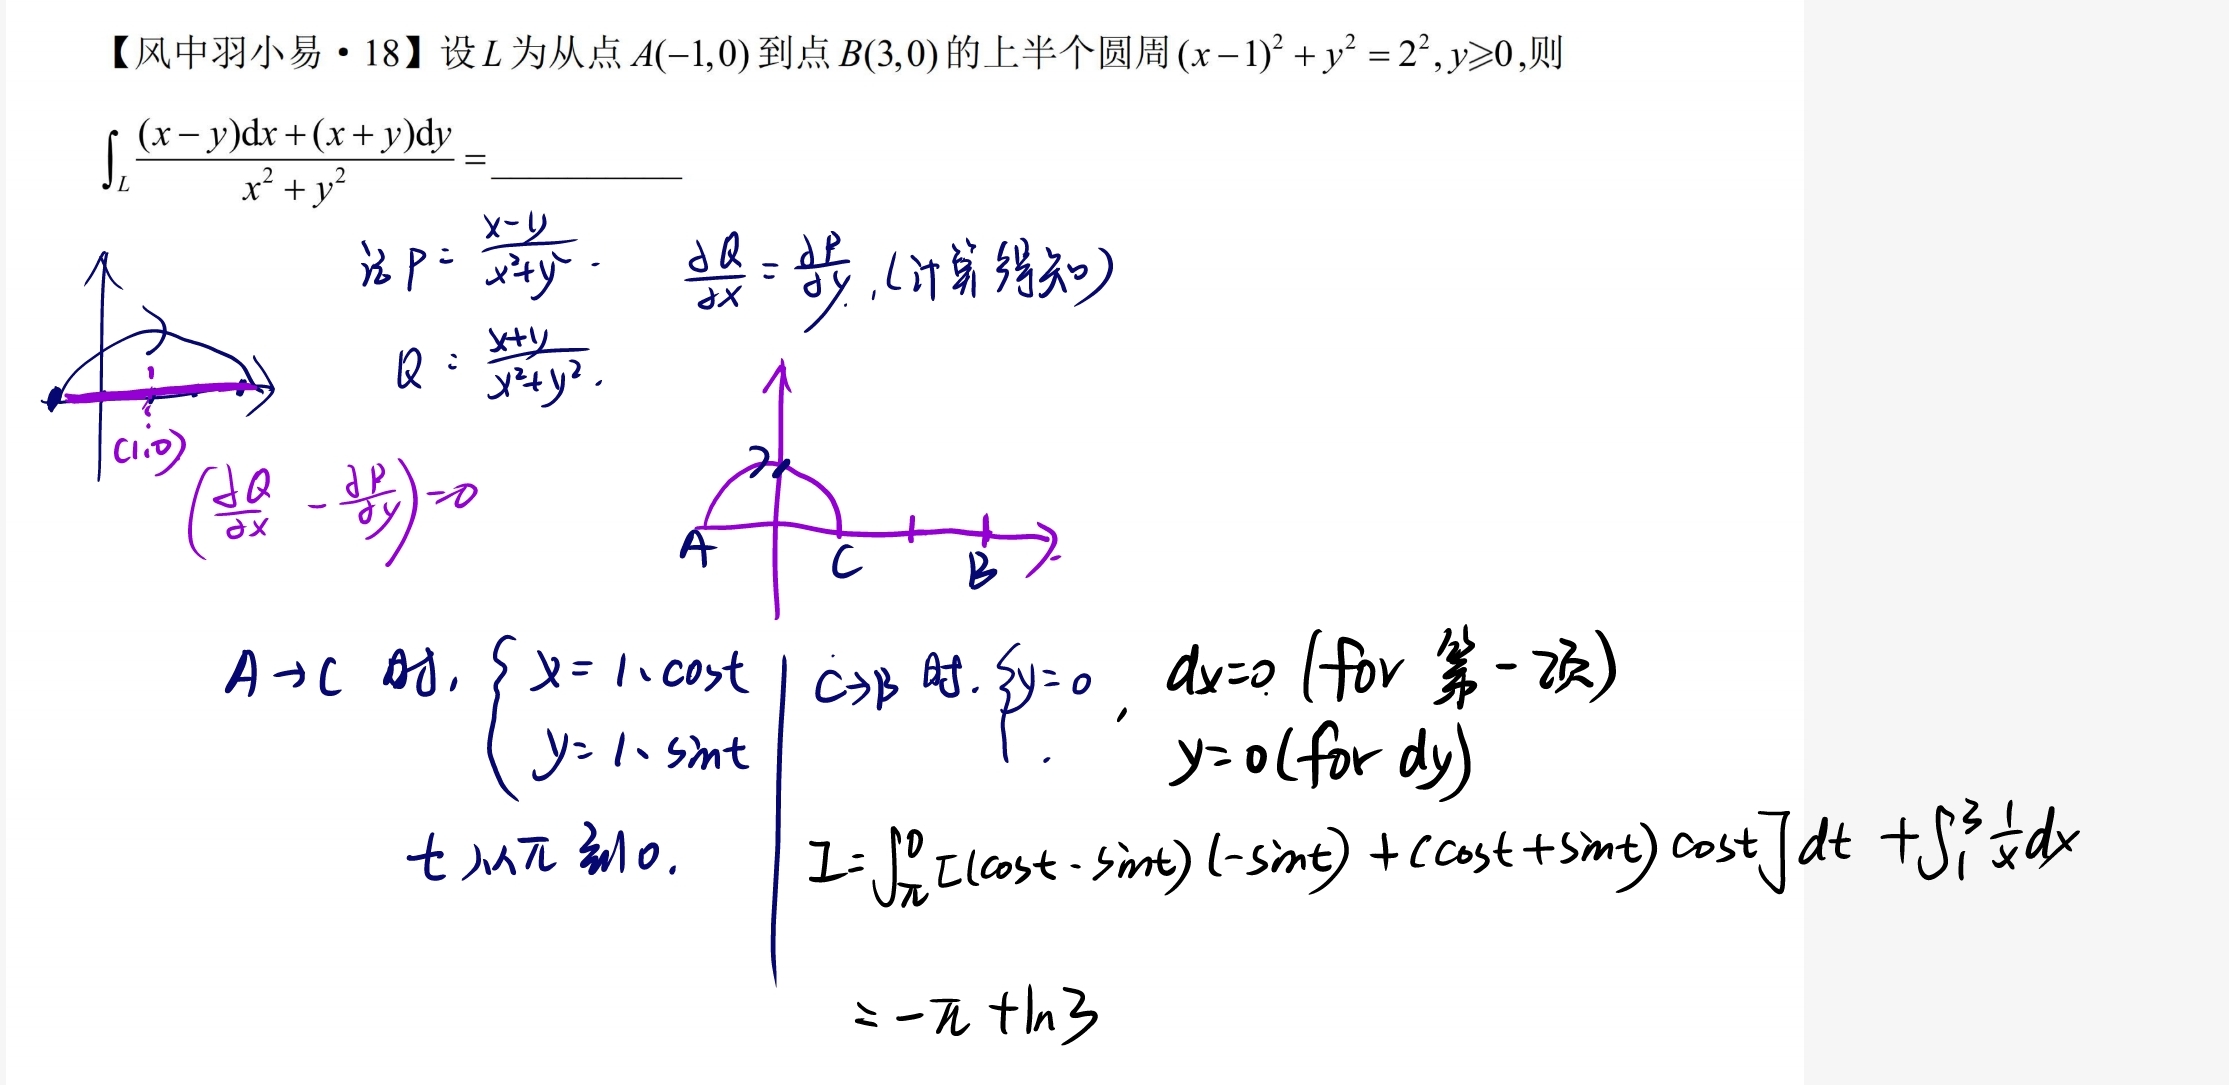 【风中羽小易·18】设L为从点A(−1,0)到点B(3,0)的上半个圆周(x−1)²+y²=2²,y⩾0,则
∫_L ((x−y)dx+(x+y)dy)/(x²+y²)=________
记 P= (x-y)/(x²+y²). ∂Q/∂x = ∂P/∂y,(计算得知)
Q: (x+y)/(x²+y²).
(1,0)
(∂Q/∂x - ∂P/∂y)=0
A C B
A→C 时, { x=1·cost
y=1·sint
t 从π到0.
C→B 时. {y=0, dx=0 (for 第一项)
y=0(for dy)
I=∫_π^0 [(cost-sint)(-sint)+(cost+sint)cost]dt +∫_1^3 1/x dx
=-π+ln3